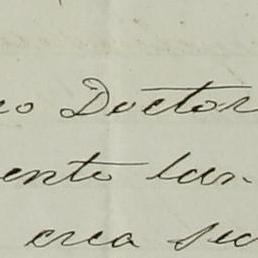 co Doctor
ente lar-
crea su